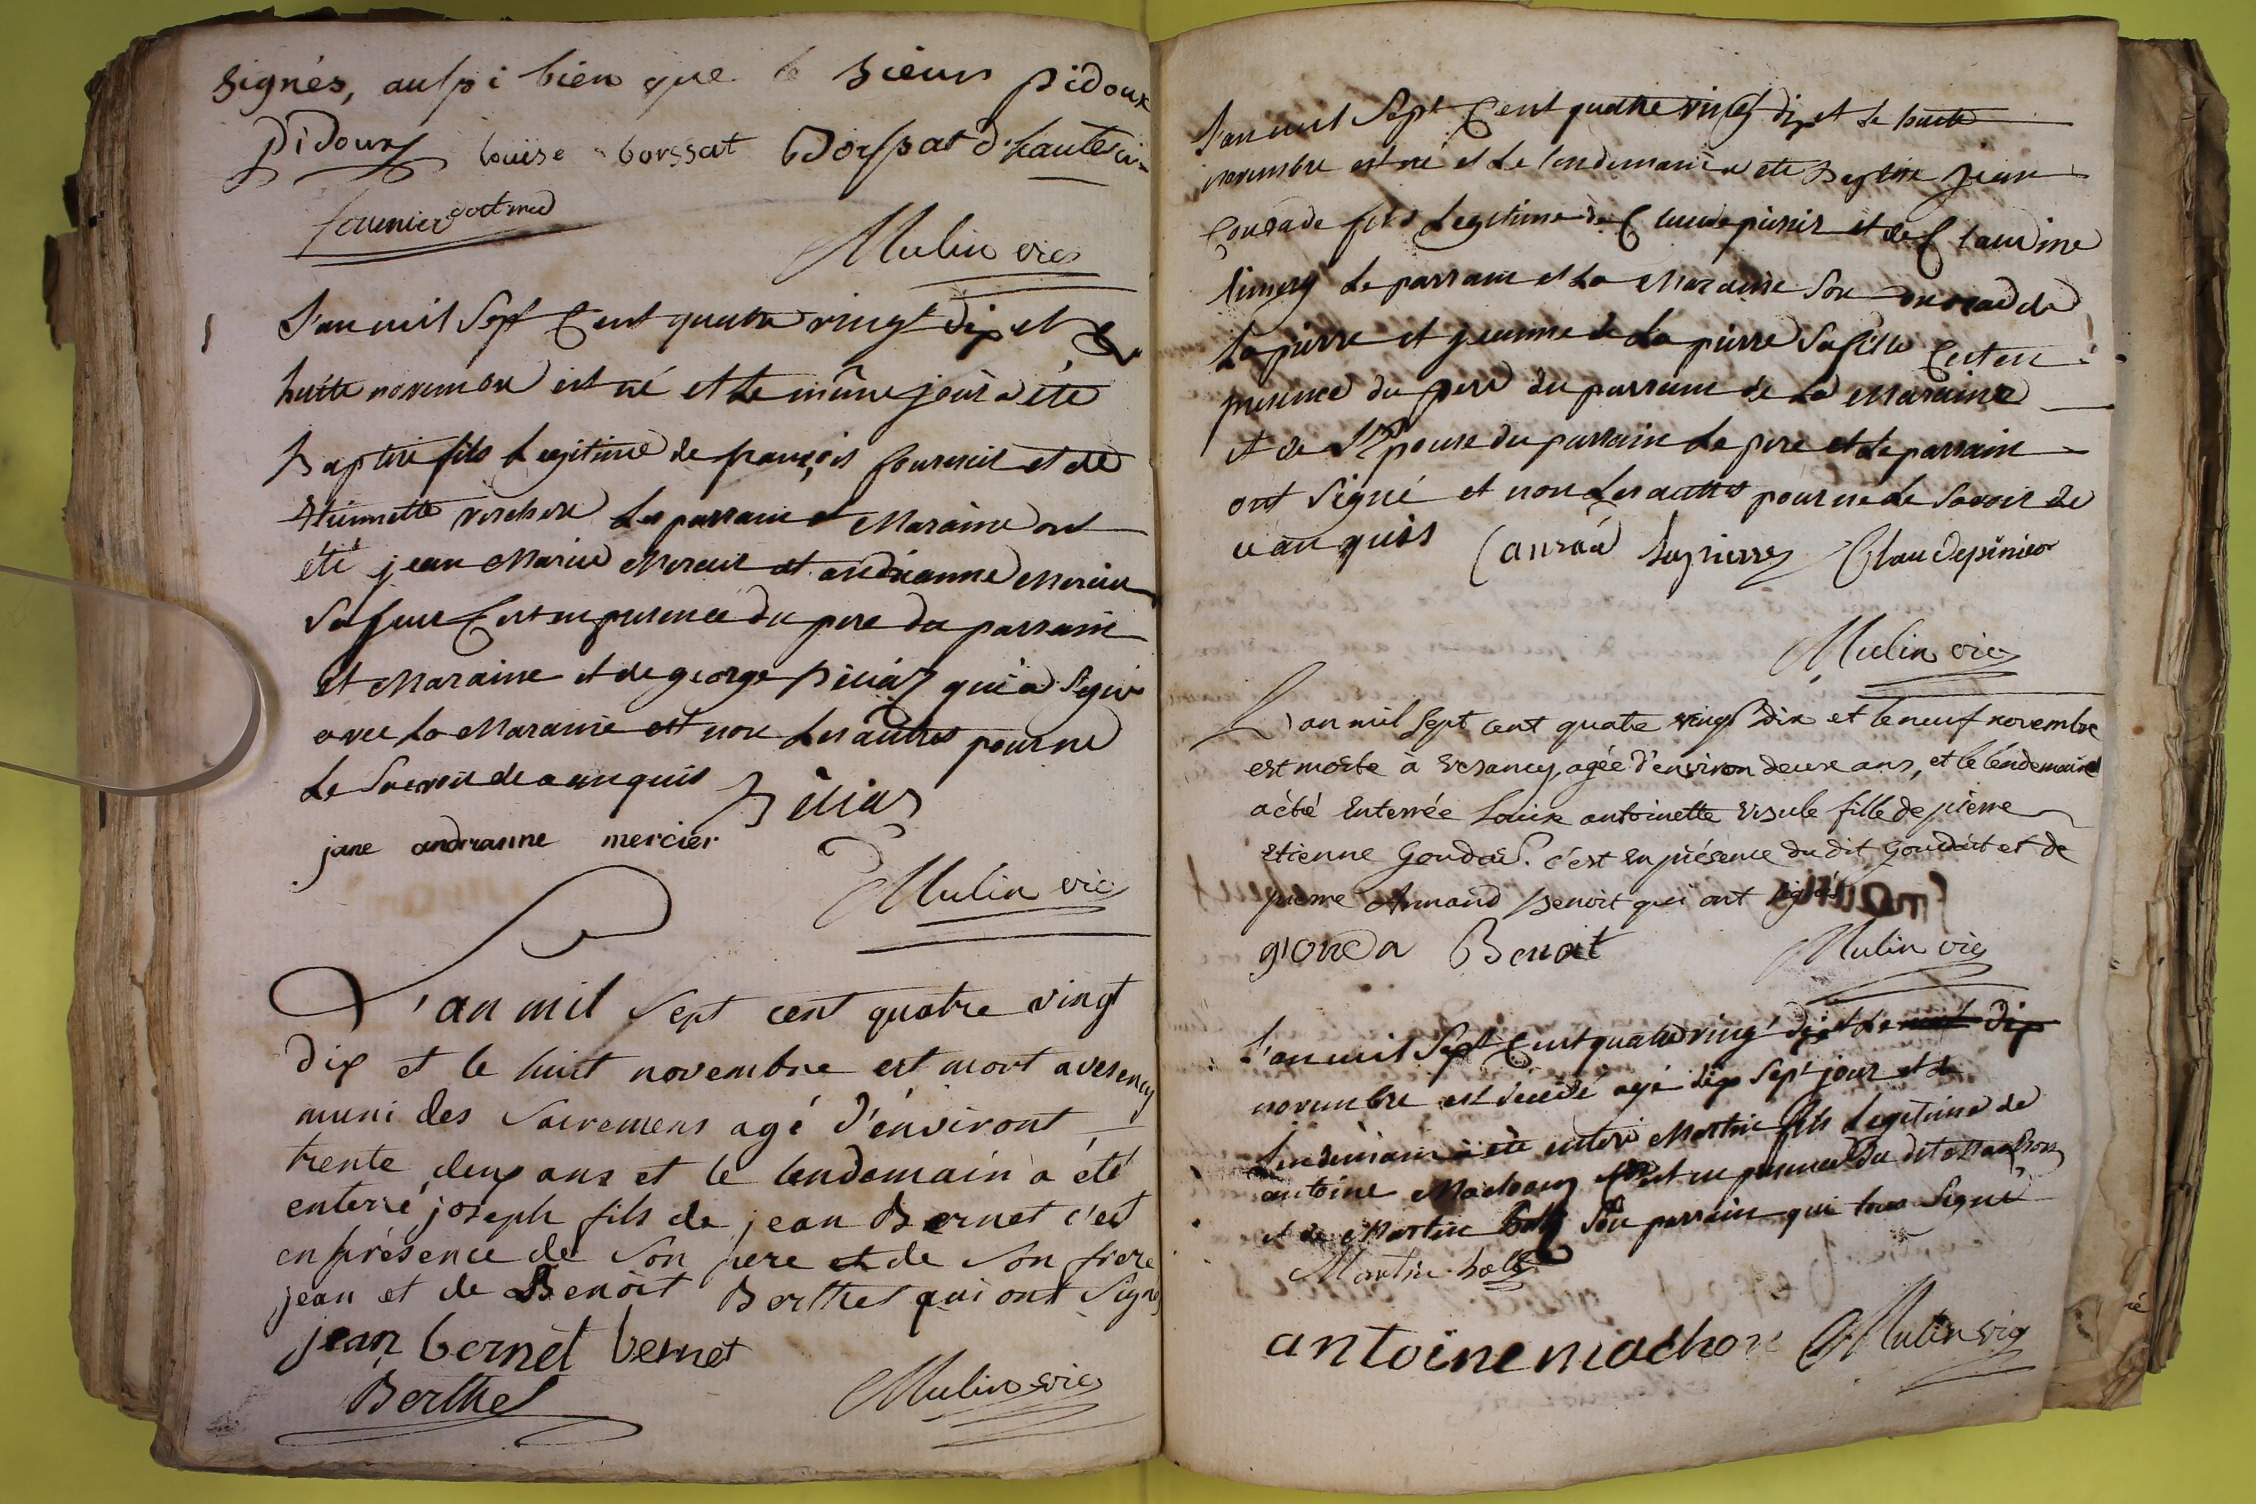 signés, aussi bien que le sieur pidoux
Pidoux louise borssat Borssat d'hauterive
fournier doct med
Mulin vic
L'an mil Sept Cent quatre vingt dix et le
huite novembre est né et le même jour a été
Baptisé fils Legitime de françois et de
Etiennette verchere Les parrain et Maraine ont
été jean Marie Mercier et andrianne Mercier
Sa seur C'est en presence du pere du parrain
et Maraine et de george qui a Signé
avec La Maraine et non Les autres pour ne
Le Savoir de ce enquis
jane andrianne mercier
Mulin vic
L'an mil sept cent quatre vingt
dix et le huit novembre est mort a vesency
muni des sacremens agé d'énviront
trente deux ans et le lendemain a été
enterré joseph fils de jean Bernet c'est
en présence de son pere et de son frere
jean et de Benoit Berthet qui ont signé
jean bernet bernet
Berthet
Mulin vic
L'an mil Sept Cent quatre vingt dix et Le huite
novembre est né et Le lendemain a été Baptisé jean
Conrade fils Legitime de Claude pinier et de Claudine
Le parrain et La Maraine Son Conrad de
La pierre et jeanne de La pierre Sa fille C'est en
presence du pere du parrain de La Maraine
et de L'Epouse du parrain Le pere et Le parrain
ont Signé et non Les autres pour ne Le Savoir de
ce enquis Conrad Lapierre Claude pinier
Mulin vic
L'an mil sept cent quatre vingt dix et le neuf novembre
est morte à vesancy, agée d'environ deux ans, et le lendemain
a été Enterrée Louise antoinette ursule fille de pierre
etienne Goudar. c'est En présence du dit Goudard et de
pierre Armand Benoit qui ont signé
Benoit
Mulin vic
L'an mil Sept Cent quatre vingt dix et Le dix
novembre est décédé agé dix Sept jour et le
Lendemain a été enterré Martin fils Legitime de
antoine Machon C'est en presence du dit Machon
et de Martin Son parrain qui tous Signé
Martin
antoine machon Mulin vic